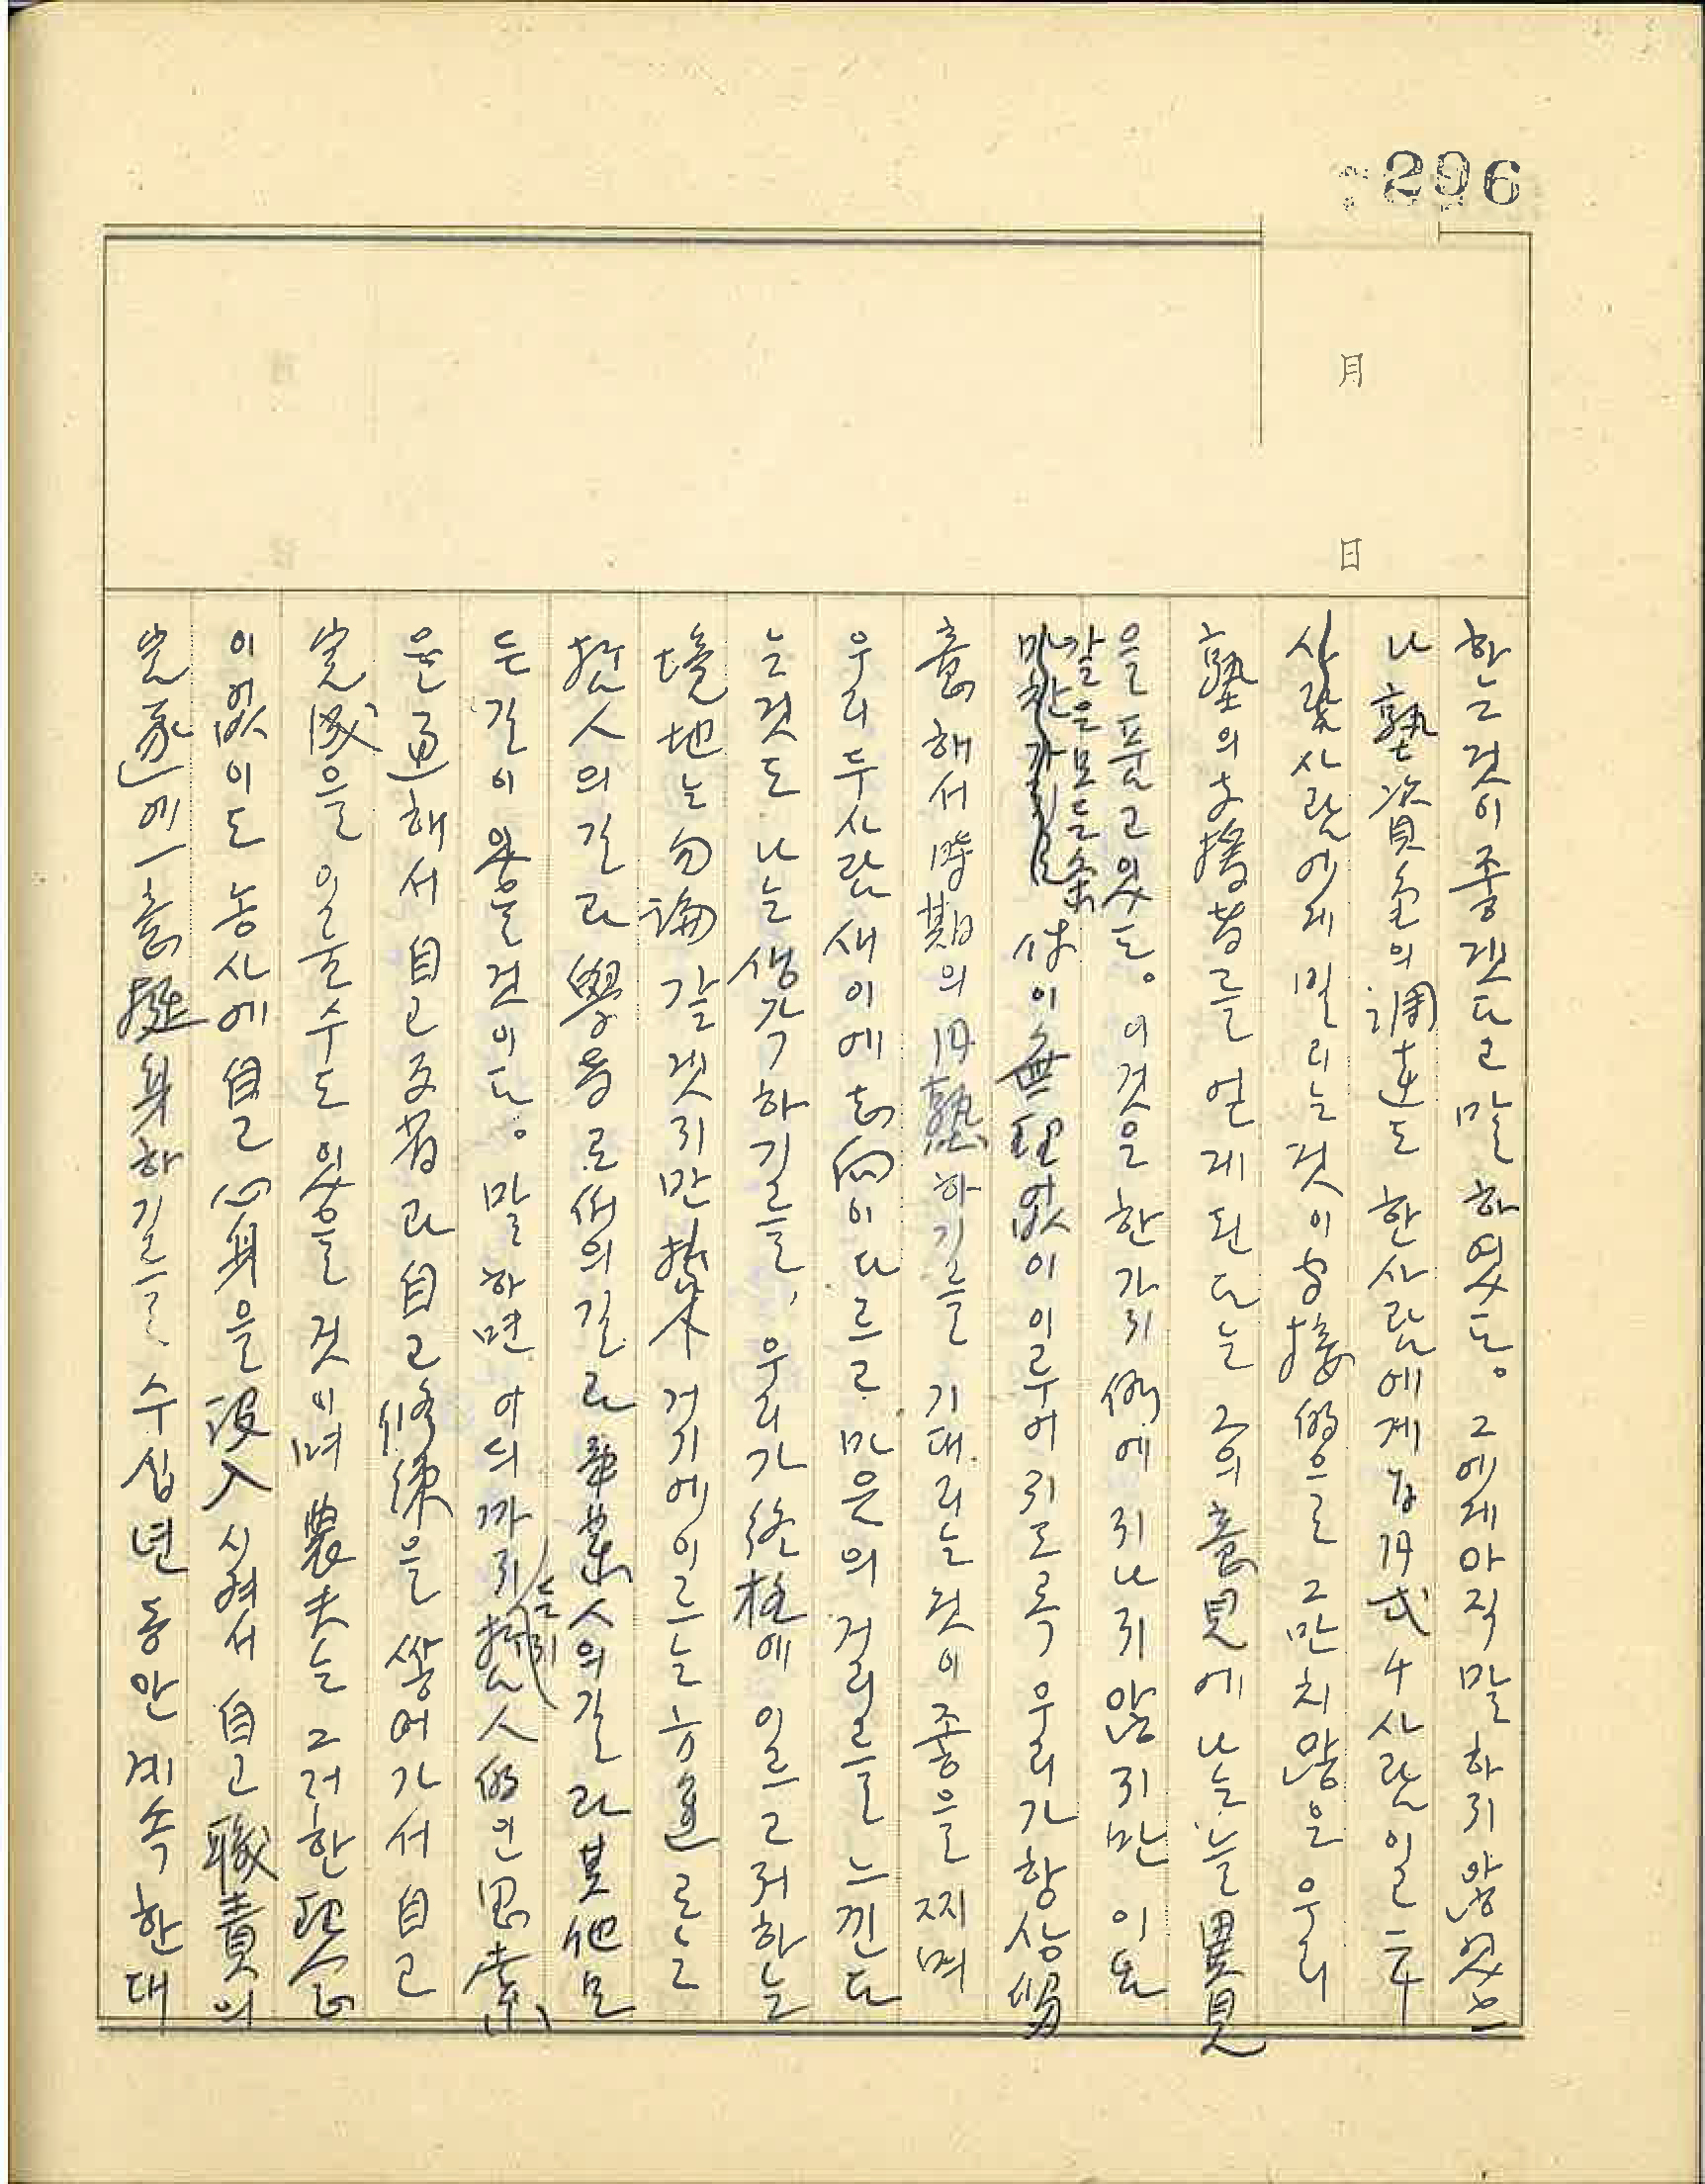 296
月
日
한는것이 좋겠다고 말하였다. 그에게 아직 말하지 않었으
나 塾資金의 調達도 한사람에게 每月 弐 4사람일
사람사람에게 밀리는 것이 直接的으로 그만치 않은 우리
塾의 支援者를 얻게 된다는 그의 意見에 나는 늘 異見
을 품고 있다. 이것은 한가지 例에 지나지 않지만 이와
같은 모든 条
件이 無理없이 이루어지도록 우리가 항상 努
意해서 時期의 円熟하기를 기대리는 것이 좋을찌며
우리 두사람 새이에 志向이 다르고 마음의 거리를 느낀다
는 것도 나는 생각하기를, 우리가 終極에 이르고저 하는
境地는 勿論 같겟지만 거기에 이르는 方途로는
哲人의 길과 學者로서의 길과 事業人의 길과 其他 모
든 길이 있을 것이다. 말하면 어듸까지든지 哲人的인 思索
을 通해서 自己 反省과 自己 修練을 쌓여가서 自己
完成을 일울 수도 있을 것이며 農夫는 그러한 理念
이 없이도 농사에 自己 心身을 沒入시켜서 自己 職責의
完遂에 一意 挺身하기를 수십년 동안 계속한대